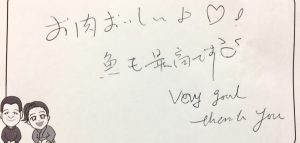 お肉おいしい♪♡♪
魚も最高です♪
Very good
thank you